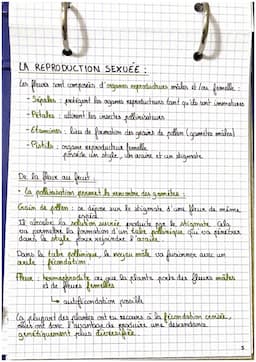 LA REPRODUCTION SEXUÉE :
Les fleurs sont composées d'organes reproducteurs mâles et/ou femelle :
- Sépales : protègent les organes reproducteurs tant qu'ils sont immatures
- Pétales : attirent les insectes pollinisateurs
- Etamines : lieu de formation des grains de pollen (gamètes mâles)
- Pistil : organe reproducteur femelle
possède un style, un ovaire et un stigmate
De la fleur au fruit
- La pollinisation permet la rencontre des gamètes :
Grain de pollen : se dépose sur le stigmate d'une fleur de même
espèce
Il absorbe la solution sucrée produite par le stigmate. Cela
va permettre la formation d'un tube pollinique qui va pénétrer
dans le style pour rejoindre l'ovaire.
Dans le tube pollinique, le noyau mâle va fusionner avec un
ovule : fécondation
Fleur : hermaphrodite ou que la plante porte des fleurs mâles
et de fleurs femelles
↳ autofécondation possible
La plupart des plantes ont eu recours à la fécondation croisée,
mais ont donc l'avantage de produire une descendance
génétiquement plus diversifiée.